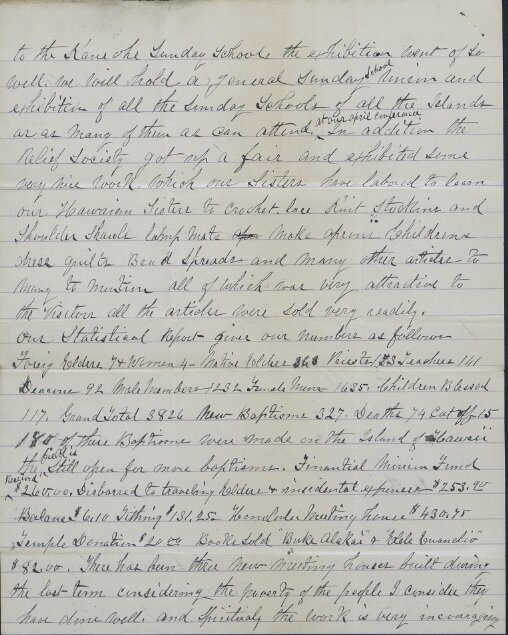 to the Kaneohe Sunday School. the exhibition went of so
well. we will hold a general Sunday School Union and
exhibition of all the Sunday Schools of all the Islands
or as many of them as can attend at our april conference. In addition the
Relief Society got up a fair and exhibited some
very nice work which our Sisters have labored to learn
our Hawaiian Sisters to Crochet. lace Knit Stockins and
Shoulder Shawls lamp mats make aprons Childrens
dress quilts Bead Spreads and many other articles to
many to mention all of which was very attractive to
the Visitors all the articles were sold very readily.
Our Statistical Report gives our numbers as follows
Foreign Elders 7 Women 4 - Native Elders Priests Teachers 141
Deacons 92 Male Members 1232 Female Mem 1635. Children Blessed
117. Grand Total 3826 New Baptisms 327. Deaths 74 Cut off 15
of these Baptisms were made on the Island of Hawaii
the field is Still open for more baptisms. Financial Mission Fund
Received $260.00. Disbursed to traveling Elders & insidental expenses $253.90
Balans $6.10 Tithing $131.25 Honolulu Meeting house $430.75
Temple Donation $20.00 Books Sold "Buke Alakai" & "Elele Euanelio"
$82.00. There has been three New Meeting houses built during
the last term considering the poverty of the people I consider they
have done well. and Spiritualy the work is very incouraging